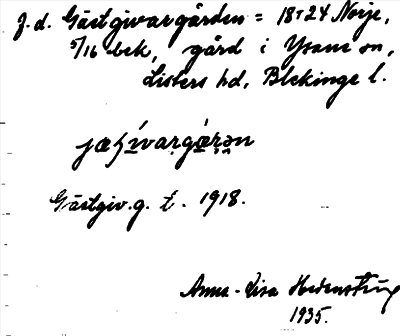 J. d. Gästgivargården = 18+24 Norje,
5/16 bek, gård i Ysane sn,
Listers hd, Blekinge l.
jæʂívargǽrən
Gästgiv.g. t. 1918.
Anna-Lisa Hedenström
1935.